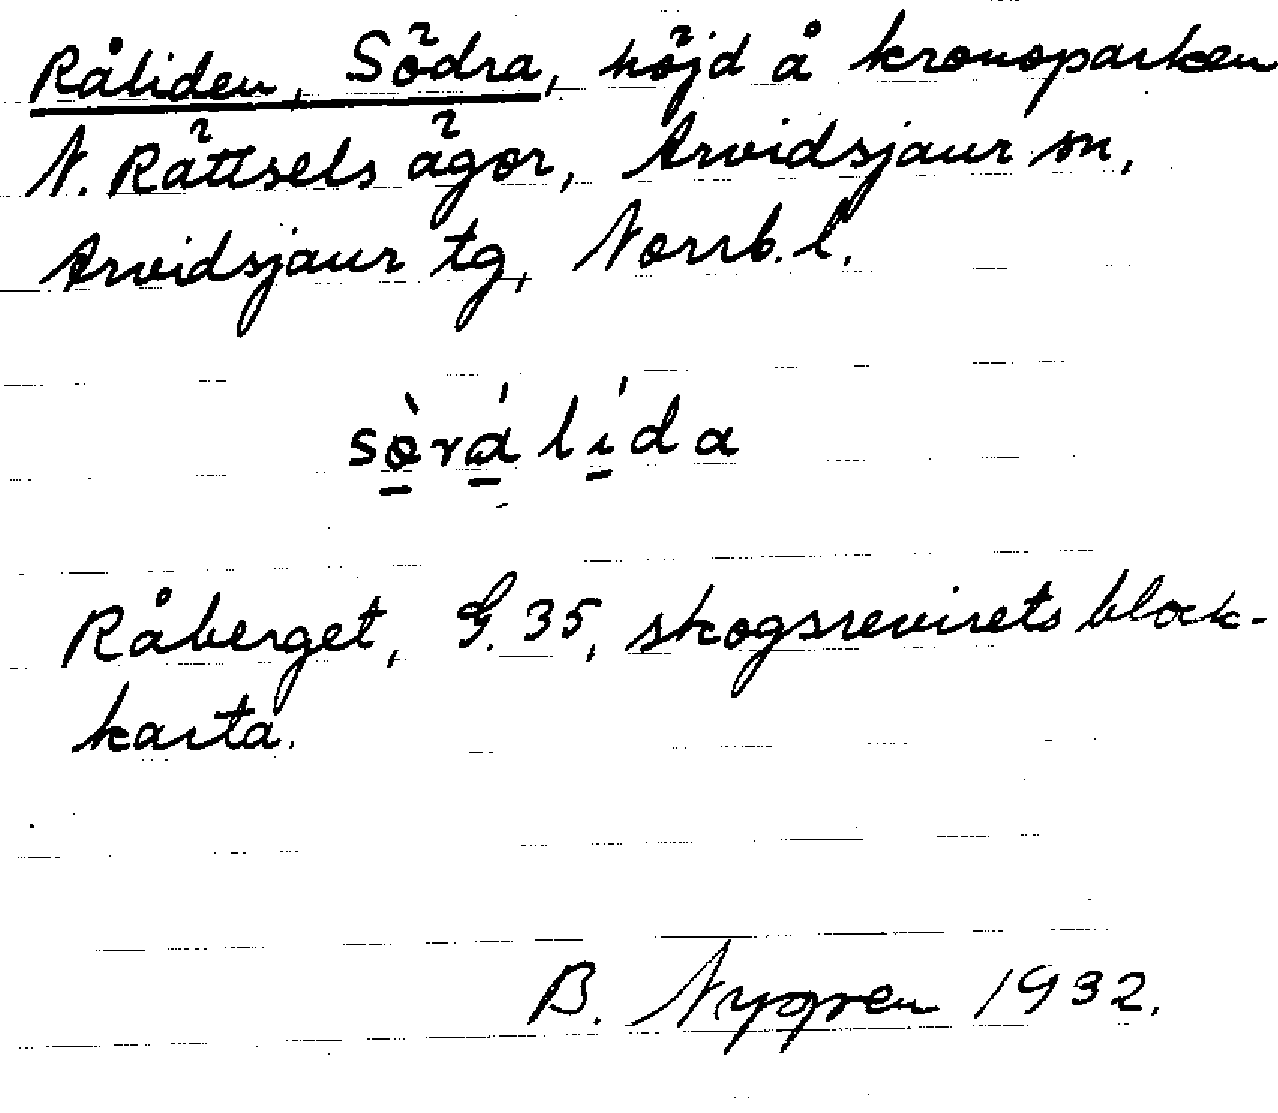 Råliden, Södra, höjd å kronoparken
N. Rättsels ägor, Arvidsjaur sn,
Arvidsjaur tg, Norrb. l.
sø̠̀rá̠lí̠da
Råberget, G. 35, skogsrevirets block-
karta.
B. Nygren 1932.